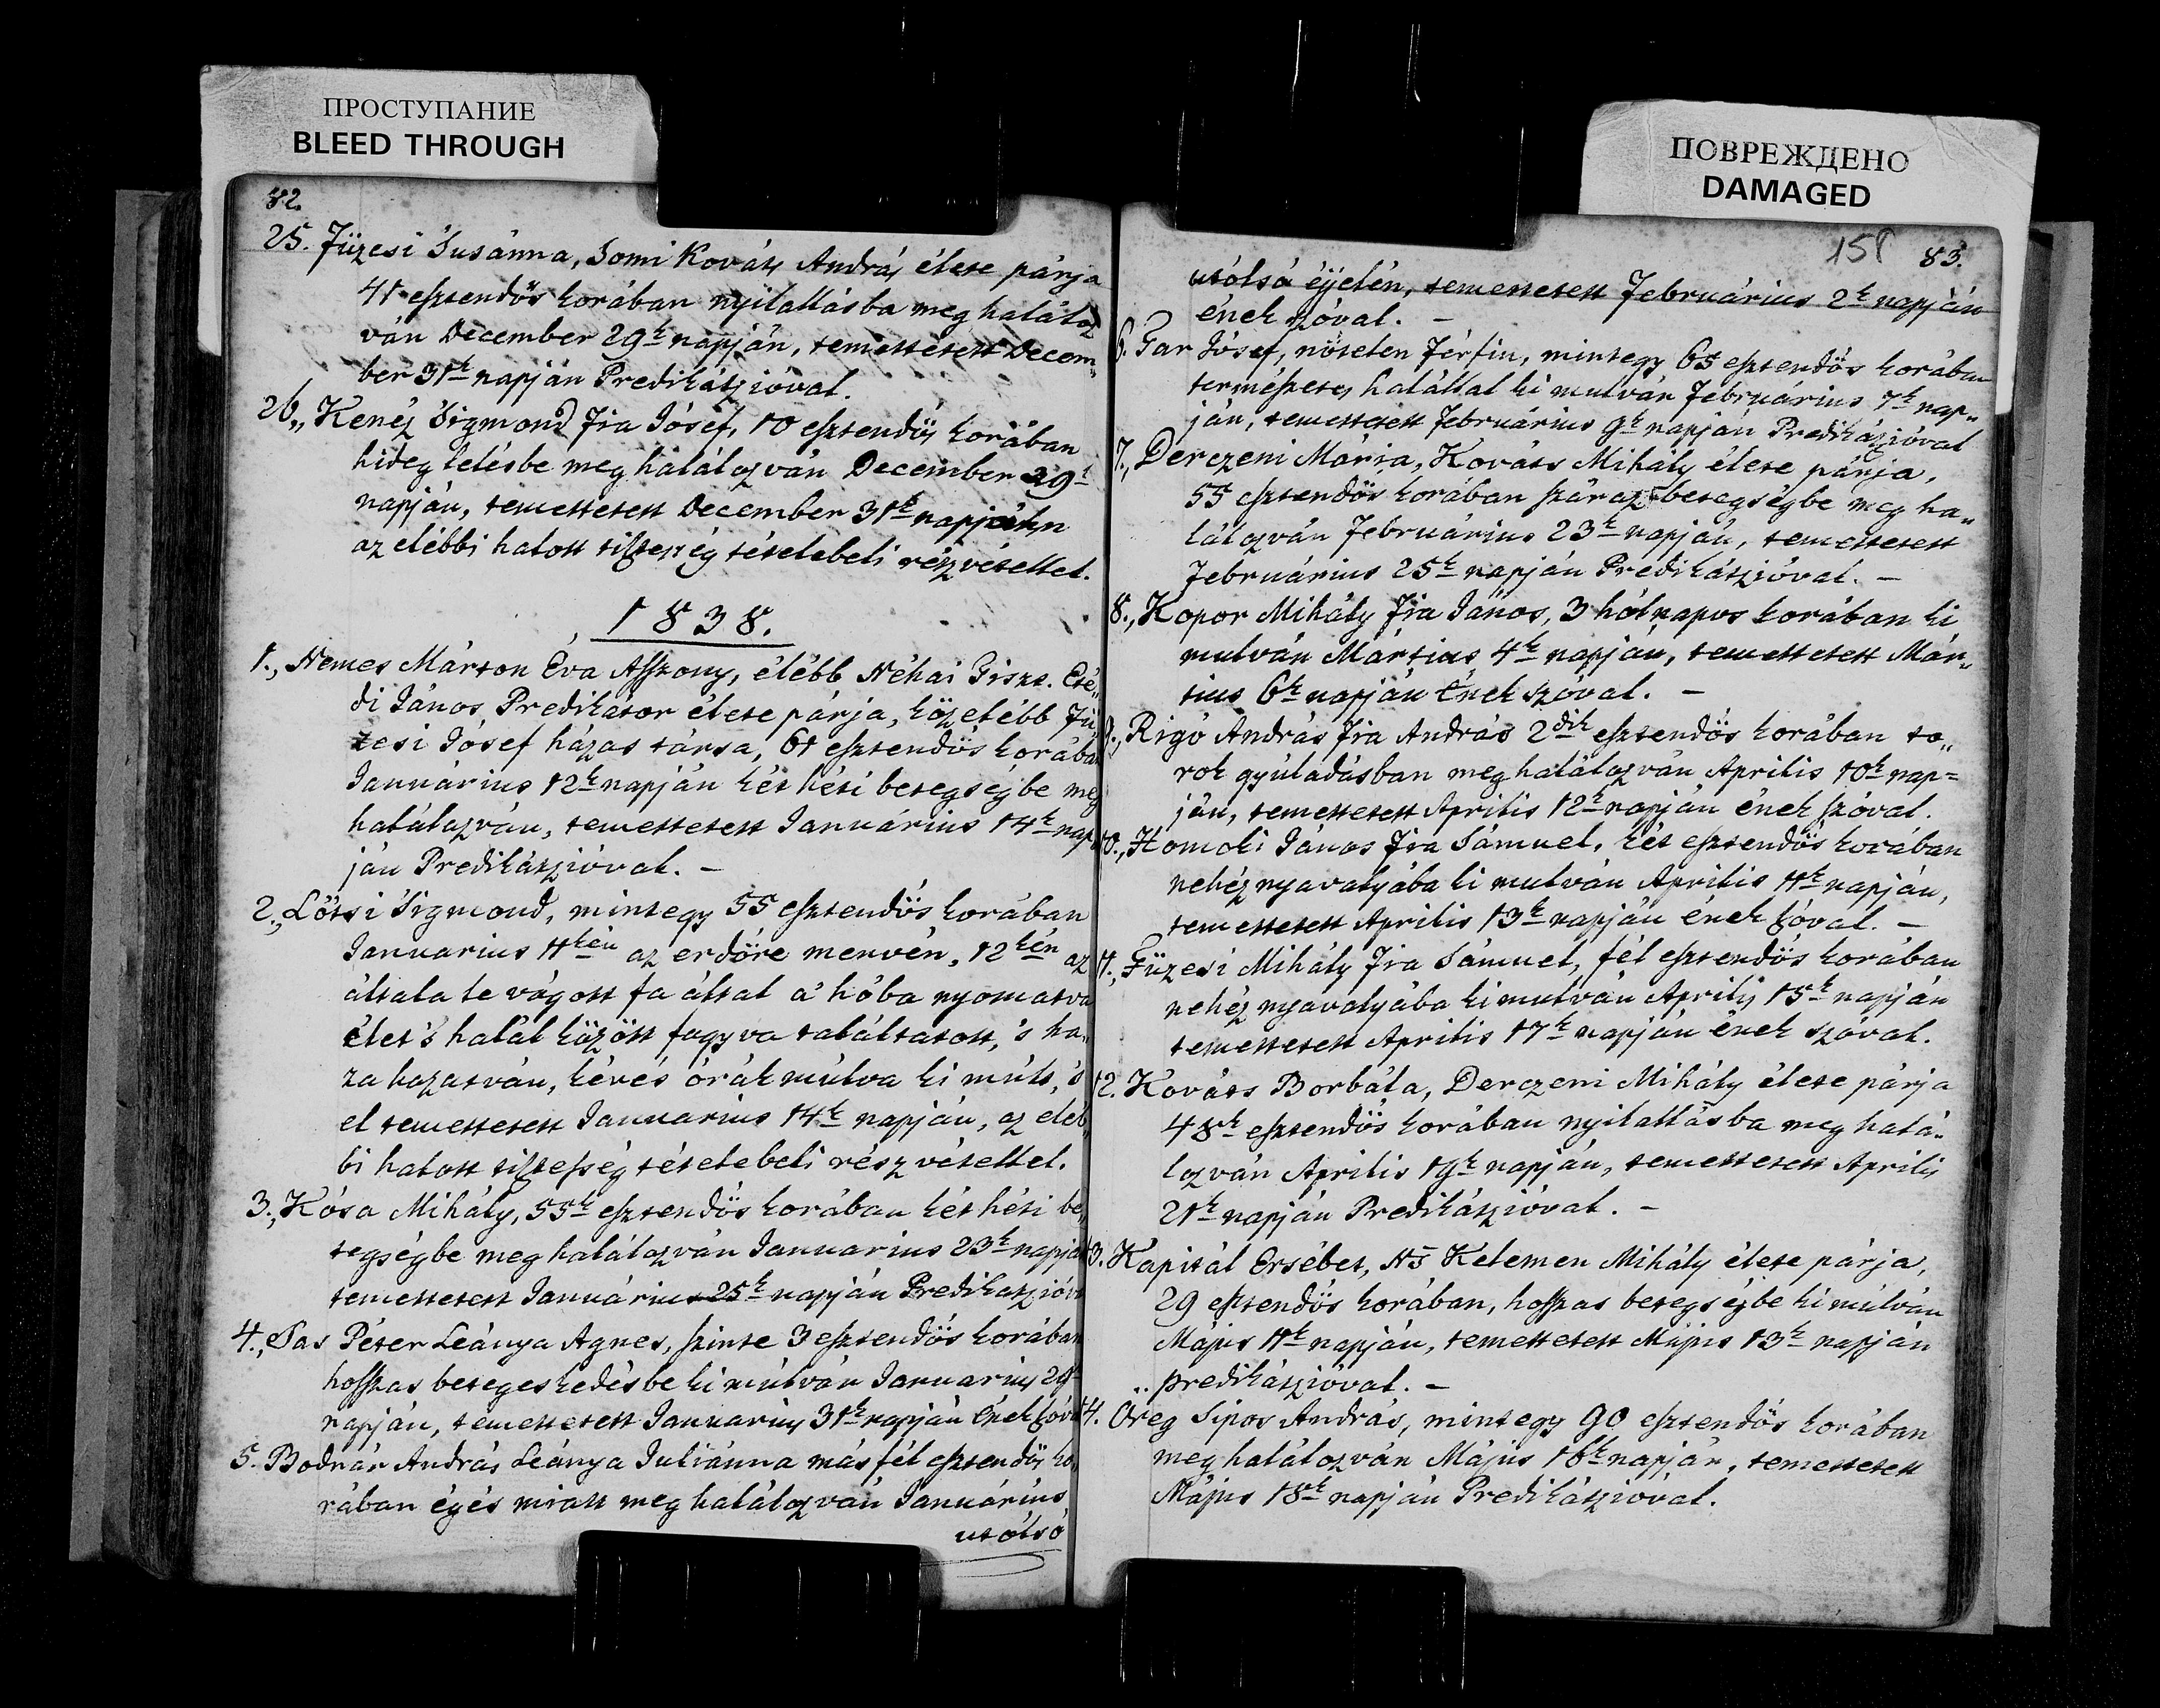 ПРОСТУПАНИЕ
BLEED THROUGH
82.
25. Füzesi Susánna, Somi Kováts András élete párja
41 esztendös korában nyilallásba meg haláloz
ván December 29k napján, temettetett Decem„
ber 31k napján Predikátzióval.
26„ Kenéz Sigmond Fia Jósef, 10 esztendös korában
hideg lelésbe meg halálozván December 29k
napján, temettetett December 31k napján
az elébbi halott tisztesség tételebeli részvétellel.
1838.
1., Nemes Márton Éva Asszony, élébb Néhai Tiszt.
di János Predikátor élete párja, közelébb Fü
zesi Jósef házas társa, 61 esztendös korában
Januárius 12k napján két héti betegségbe meg
halálozván, temettetett Januárius 14k nap
ján Predikátzióval. –
2., Lötsi Sigmond, mintegy 55 esztendös korában
Januarius 11kén az erdöre menvén, 12kén az
általa le vágott fa által a' hóba nyomatva
élet 's halál között fagyva találtatott, 's ha„
za hozatván, kévés órák múlva ki múlt, 's
el temettetett Januarius 14k napján, az eléb„
bi halott tisztesség tételebeli rész vétellel.
3., Kósa Mihály, 55k esztendös korában két héti be„
tegségbe meg halálozván Januarius 23k napján
temettetett Januárius 25k napján Predikatzióv
4., Pas Péter Leánya Agnes, szinte 3 esztendös korában
hosszas betegeskedésbe ki múlván Januarius 29k
napján, temettetett Januarius 31k napján Ének szóva
5. Bodnár András Leánya Juliánna más fél esztendös ko„
rában égés miatt meg halálozván Januárius
utólsó
ПОВРЕЖДЕНО
DAMAGED
158 83.
utólsó éjjelén, temettetett Februárius 2k napján
ének szóval. –
6. Gar Jósef, nötelen Férfiu, mintegy 65 esztendös korában
természetes halállal ki mulván Februárius 7k nap„
ján, temettetett Februárius 9k napján Predikátzióval
7., Derczeni Mária, Kováts Mihály élete párja,
55 esztendös korában száraz betegségbe meg ha„
lálozván Februárius 23k napján, temettetett
Februárius 25k napján Predikátzióval. –
8., Kopor Mihály Fia János, 3 hólnapos korában ki
mulván Mártius 4k napján, temettetett Már„
tius 6k napján Ének szóval. –
9., Rigó András Fia András 2dik esztendös korában to„
rok gyúladásban meg halálozván Aprilis 10k nap=
ján, temettetett Aprilis 12k napján ének szóval.
10., Homoki János Fia Sámuel, két esztendös korában
nehéz nyavalyába ki mulván Aprilis 11k napján,
temettetett Aprilis 13k napján ének szóval. –
11., Füzesi Mihály Fia Sámuel, fél esztendös korában
nehéz nyavalyába ki mulván Aprilis 15k napján
temettetett Aprilis 17k napján ének szóval.
12. Kováts Borbála, Derczeni Mihály élete párja
48k esztendös korában nyilallásba meg halá„
lozván Aprilis 19k napján, temettetett Aprilis
21k napján Predikátzióval. –
13. Kapitál Ersébet, Ns Kelemen Mihály élete párja,
29 esztendös korában, hosszas betegségbe ki múlván
Május 11k napján, temettetett Május 13k napján
predikátzióval. –
14. Öreg Sipos András, mintegy 90 esztendös korában
meg halálozván Május 16k napján, temettetett
Május 18k napján Predikátzióval.